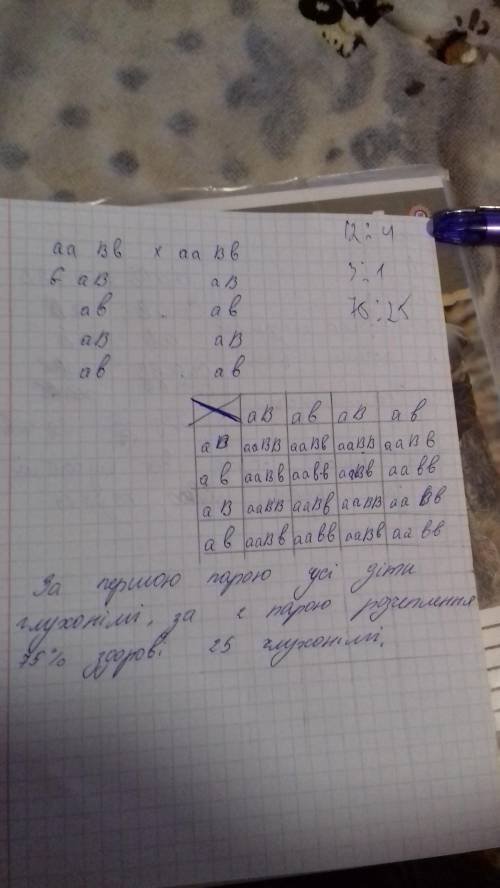 аа Вв х аа Вв
12 : 4
б аВ аВ
3 : 1
ав ав
75 : 25
аВ аВ
ав ав
аВ ав аВ ав
аВ ааВВ ааВв ааВВ ааВв
ав ааВв аавв ааВв аавв
аВ ааВВ ааВв ааВВ ааВв
ав ааВв аавв ааВв аавв
За першою парою усі діти
глухонімі, за 2 парою розчеплення
75% здорові 25 глухонімі.